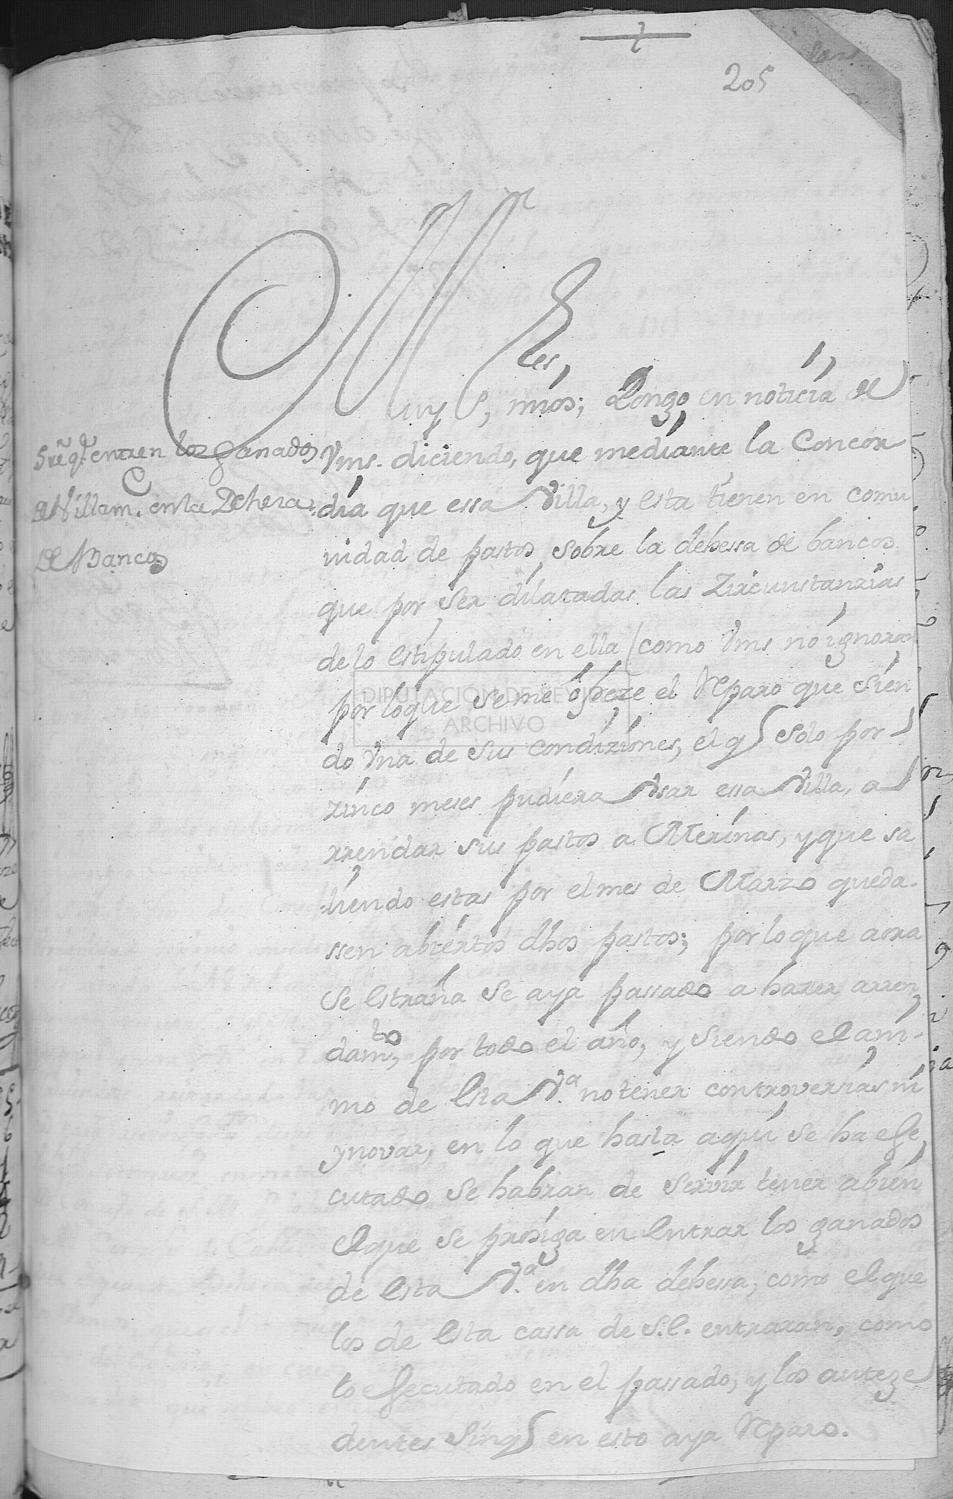 205
Muy S.res, mios; Pongo en noticia de
Vms. diciendo, que mediante la Concor
dia que essa Villa, y esta tienen en comu
nidad de pastos sobre la dehessa de bancos
que por ser dilatadas las Zircunstanzias
de lo estipulado en ella (como Vms no ignoran)
por loque se me ofreze el Reparo que sien
do Vna de sus condiziones, el q solo por
zinco meses pudiera Vsar essa Villa, a
rrendar sus pastos a Merinas, y que sa
liendo estas por el mes de Marzo queda-
ssen abiertos dhos pastos; por lo que aora
se estraña se aya passado a hazer arren
dam.to, por todo el año, y siendo el ani-
mo de esta V.a no tener controversias ni
ynovar, en lo que hasta aqui se ha efe
cutado se habran de servir tener abien
el que se prosiga en entrar los ganados
de esta V.a en dha dehessa, como el que
los de esta cassa de S.E. entraran, como
lo efecutado en el passado, y los anteze
dentes sinq en esto aya Reparo.
Sre q.e entren los ganados
de Villam. en la Dehesa
de Bancos
DIPUTACIÓN DE SEVILLA
ARCHIVO